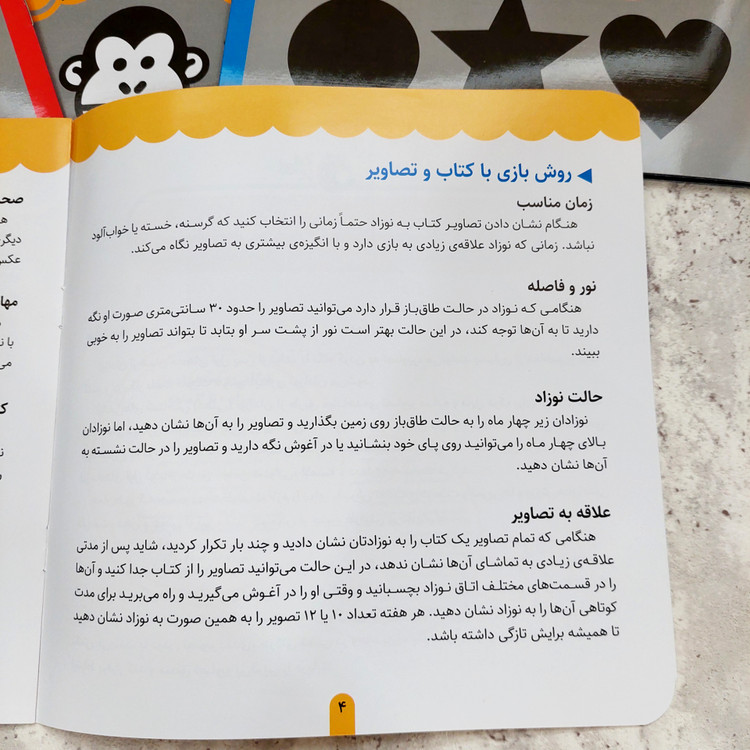 روش بازی با کتاب و تصاویر
زمان مناسب
هنگام نشان دادن تصاویر کتاب به نوزاد حتماً زمانی را انتخاب کنید که گرسنه، خسته یا خواب‌آلود
نباشد. زمانی که نوزاد علاقه‌ی زیادی به بازی دارد و با انگیزه‌ی بیشتری به تصاویر نگاه می‌کند.
نور و فاصله
هنگامی که نوزاد در حالت طاق‌باز قرار دارد می‌توانید تصاویر را حدود ۳۰ سانتی‌متری صورت او نگه
دارید تا به آن‌ها توجه کند، در این حالت بهتر است نور از پشت سر او بتابد تا بتواند تصاویر را به خوبی
ببیند.
حالت نوزاد
نوزادان زیر چهار ماه را به حالت طاق‌باز روی زمین بگذارید و تصاویر را به آن‌ها نشان دهید، اما نوزادان
بالای چهار ماه را می‌توانید روی پای خود بنشانید یا در آغوش نگه دارید و تصاویر را در حالت نشسته به
آن‌ها نشان دهید.
علاقه به تصاویر
هنگامی که تمام تصاویر یک کتاب را به نوزادتان نشان دادید و چند بار تکرار کردید، شاید پس از مدتی
علاقه‌ی زیادی به تماشای آن‌ها نشان ندهد، در این حالت می‌توانید تصاویر را از کتاب جدا کنید و آن‌ها
را در قسمت‌های مختلف اتاق نوزاد بچسبانید و وقتی او را در آغوش می‌گیرید و راه می‌برید برای مدت
کوتاهی آن‌ها را به نوزاد نشان دهید. هر هفته تعداد ۱۰ یا ۱۲ تصویر را به همین صورت به نوزاد نشان دهید
تا همیشه برایش تازگی داشته باشد.
۴